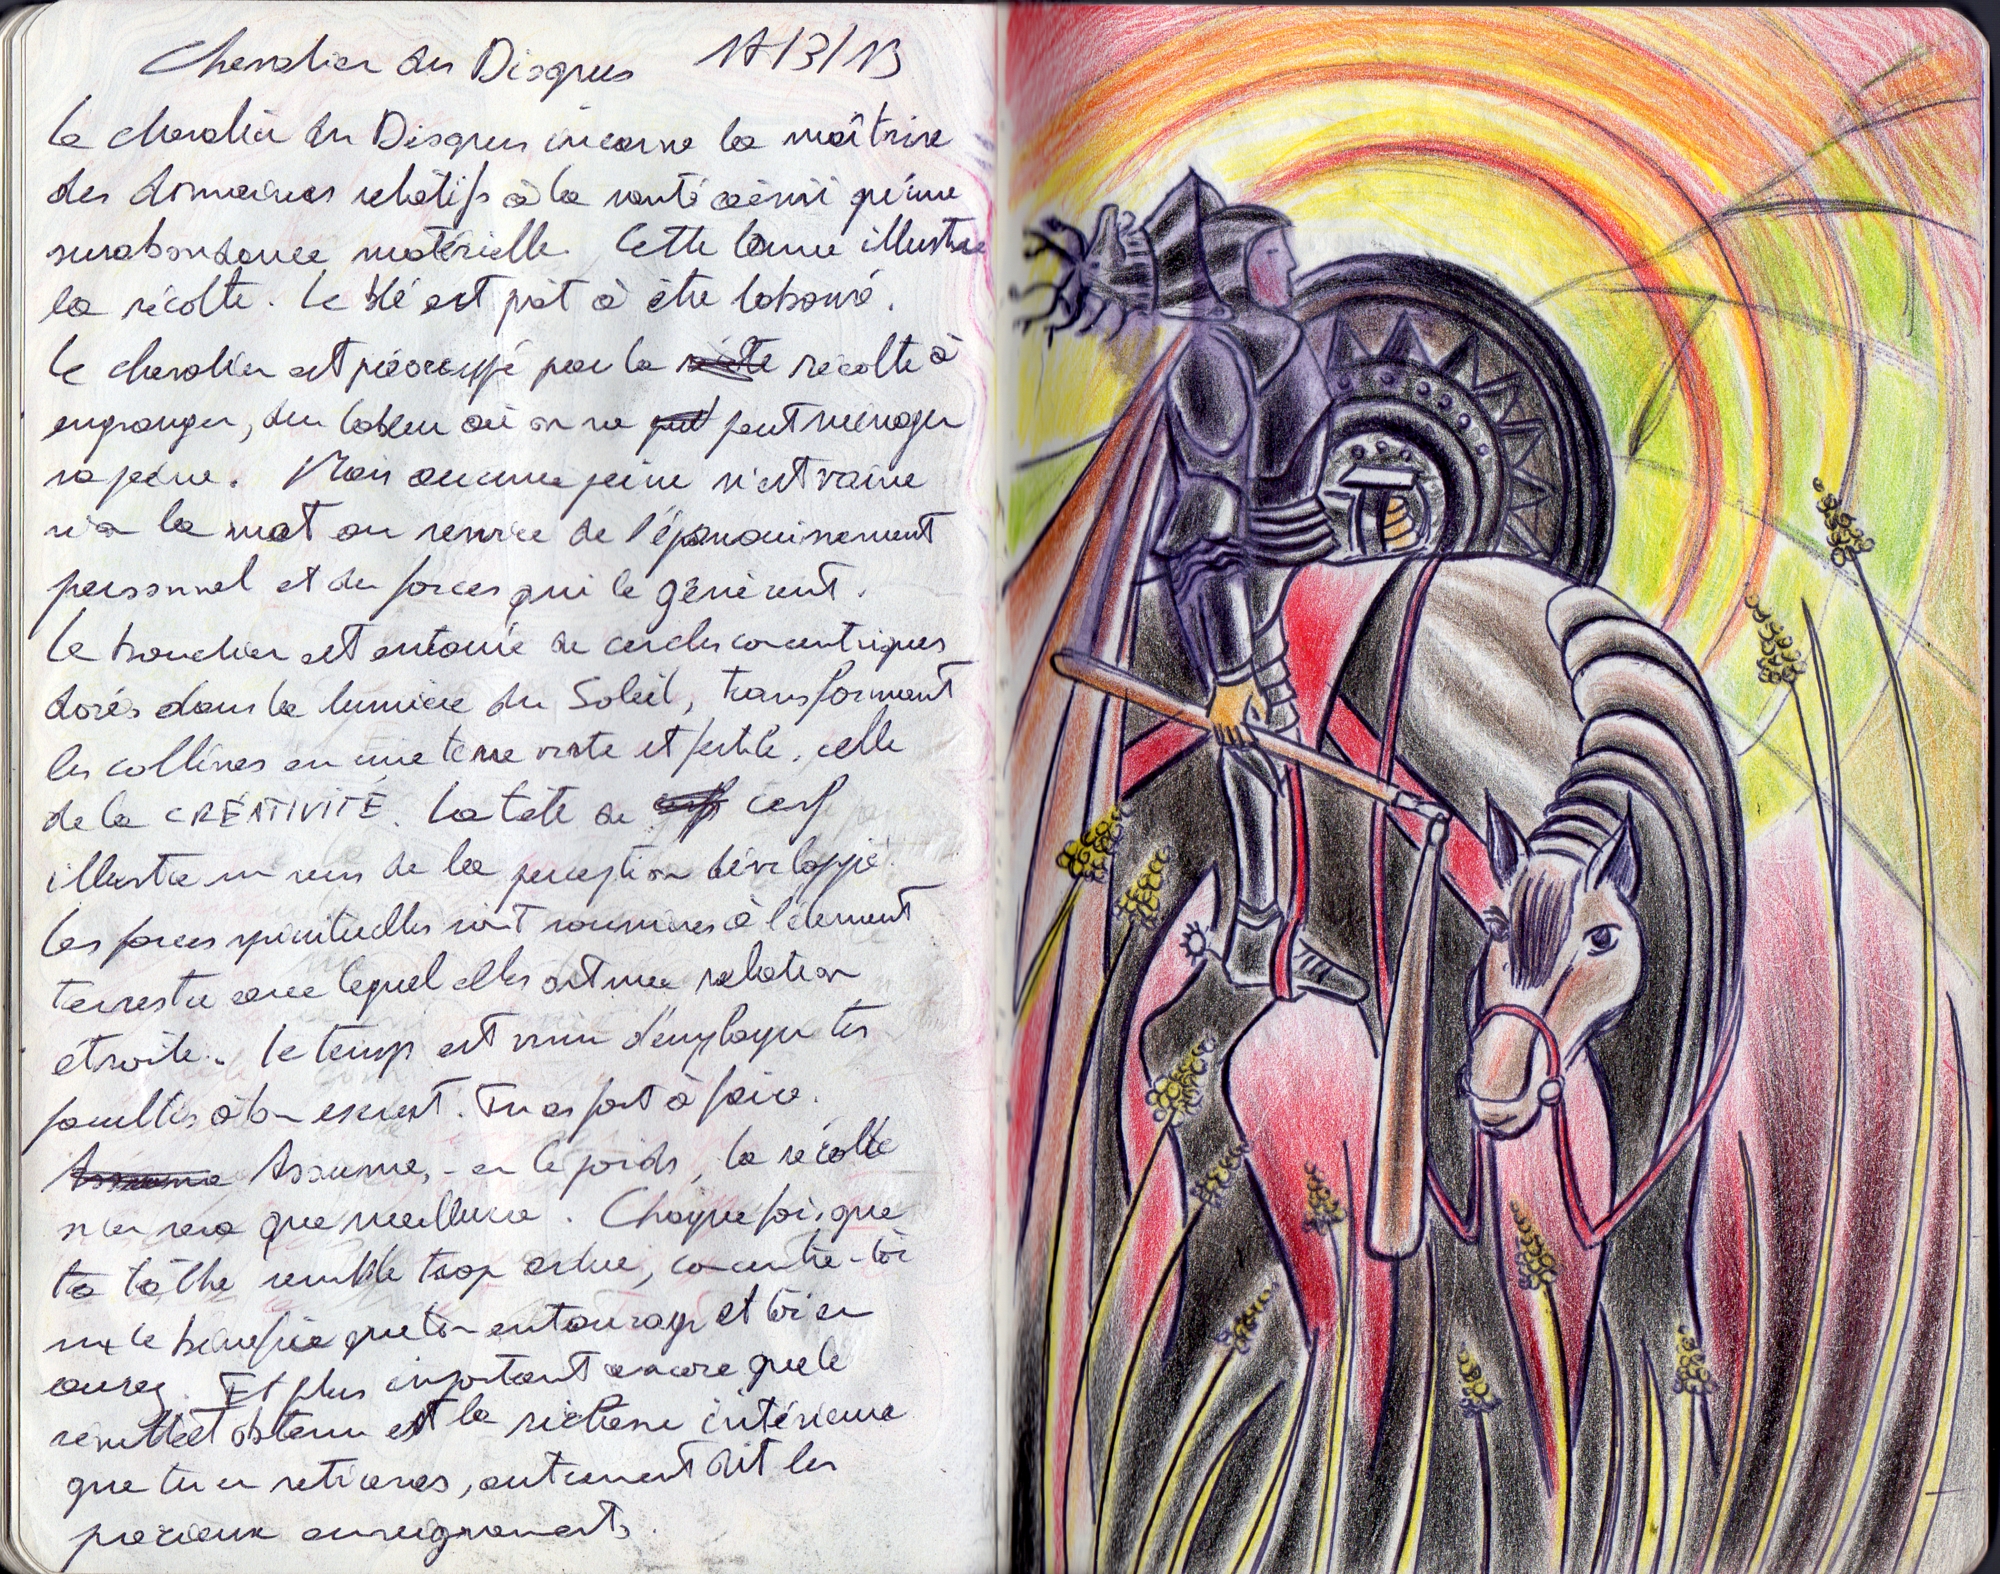 Chevalier des Disques 17/3/13
Le chevalier des Disques incarne la maîtrise
des domaines relatifs à la santé ainsi qu'une
surabondance matérielle. Cette lame illustre
la récolte. Le blé est prêt à être labouré.
Le chevalier est préoccupé par la récolte à
engranger, du labeur où on ne peut ménager
sa peine. Mais aucune peine n'est vaine
si on la met au service de l'épanouissement
personnel et des forces qui le génèrent.
Le bouclier est entouré de cercles concentriques
dorés dans la lumière du Soleil, transformant
les collines en une terre verte et fertile, celle
de la CRÉATIVITÉ. La tête de cerf
illustre un sens de la perception développé.
Les forces spirituelles sont soumises à l'élément
terrestre avec lequel elles ont une relation
étroite. Le temps est venu d'employer tes
facultés à bon escient. Tu as fort à faire.
Assume-en le poids, la récolte
n'en sera que meilleure. Chaque fois que
ta tâche semble trop ardue, concentre-toi
sur le bénéfice que ton entourage et toi en
aurez. Et plus important encore que le
résultat obtenu est la richesse intérieure
que tu en retireras, autrement dit les
précieux enseignements.